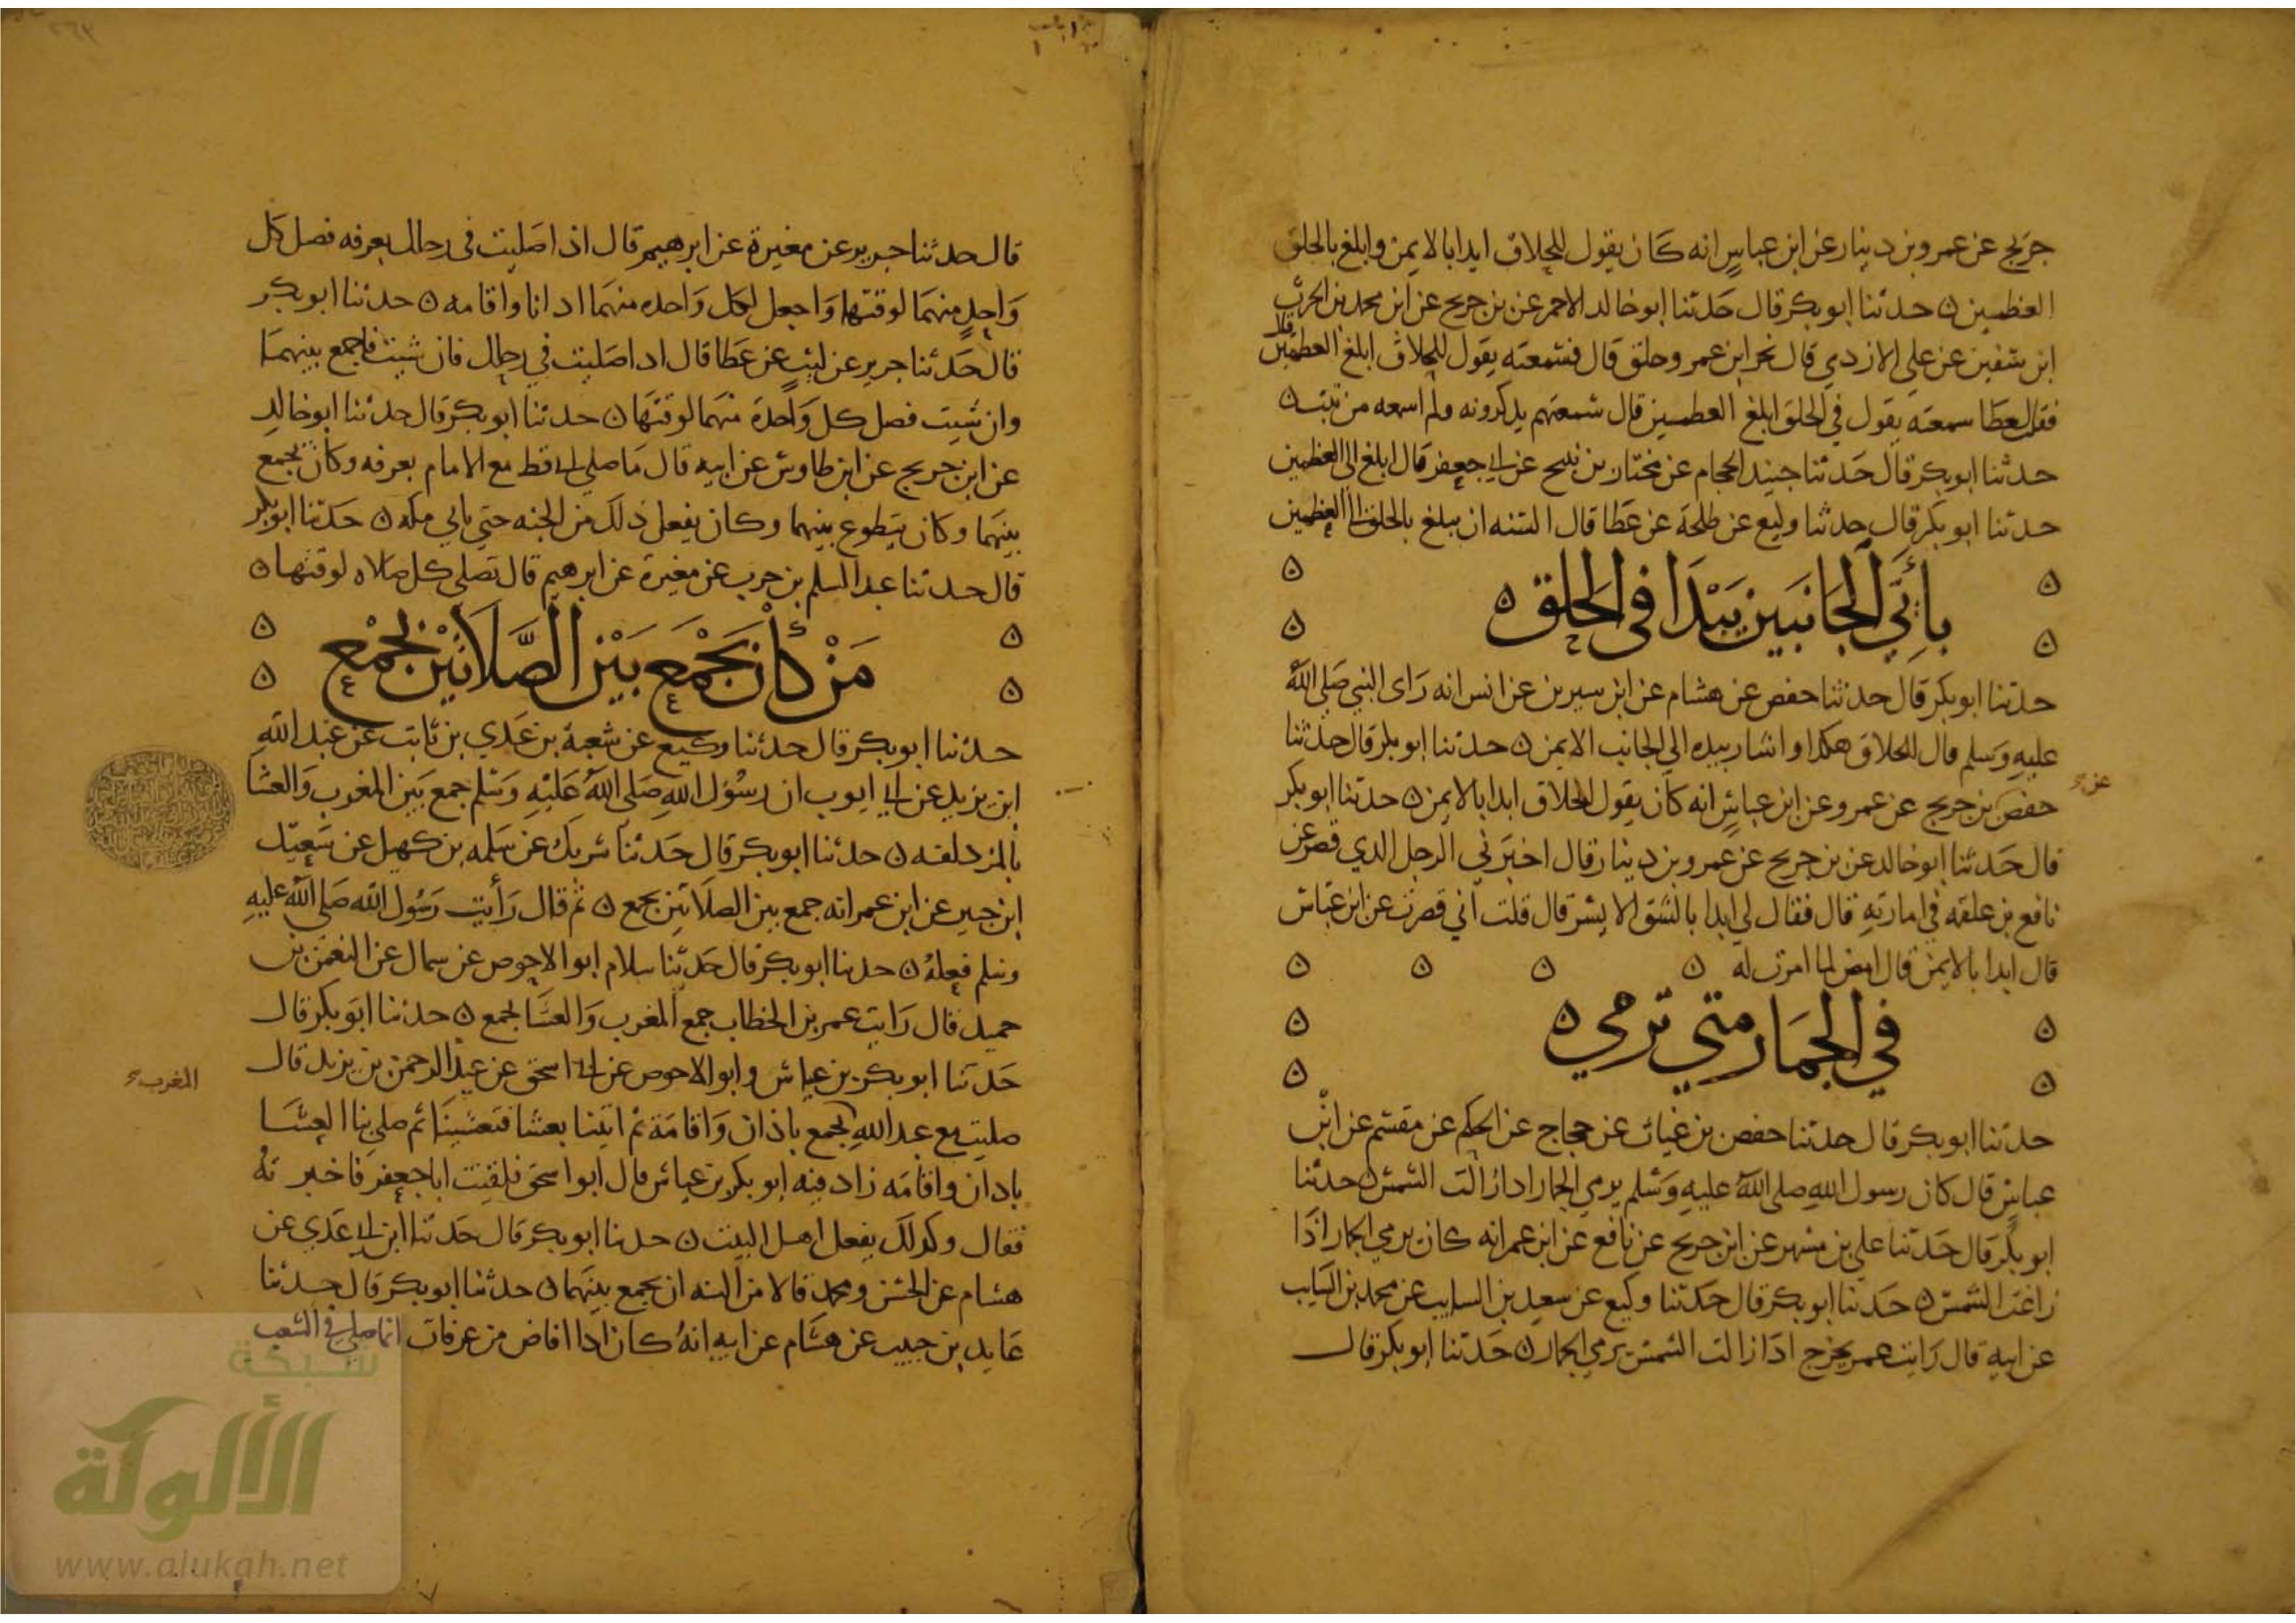 جريج عن عمرو بن دينار عن ابن عباس انه كان يقول للحلاق ابدا بالايمن وابلغ بالحلق
العظمين ه حدثنا ابو بكر قال حدثنا ابو خالد الاحمر عن بن جريج عن ابن محمد بن الحرث
ابن سفين عن علي الازدي قال نحر ابن عمر وحلق قال فسمعته يقول للحلاق ابلغ العظمين
فقلت لعطا سمعته يقول في الحلق ابلغ العظمين قال سمعتهم يذكرونه ولم اسمعه من ثبت ه
حدثنا ابو بكر قال حدثنا جنيد الحجام عن مختار بن نبيح عن ابي جعفر قال ابلغ الى العظمين
حدثنا ابو بكر قال حدثنا وكيع عن طلحة عن عطا قال السنه ان يبلغ بالحلق الى العظمين
باي الجانبين يبدا في الحلق ه
حدثنا ابو بكر قال حدثنا حفص عن هشام عن ابن سيرين عن انس انه راى النبي صلى الله
عليه وسلم قال للحلاق هكذا واشار بيده الى الجانب الايمن ه حدثنا ابو بكر قال حدثنا
حفص بن جريج عن عمرو عن ابن عباس انه كان يقول للحلاق ابدا بالايمن ه حدثنا ابو بكر
عن
قال حدثنا ابو خالد عن بن جريج عن عمرو بن دينار قال اخبرني الرجل الذي قصر عن
نافع بن علقمه في امارته قال فقال لي ابدا بالشق الايسر قال قلت اني قصرت عن ابن عباس
قال ابدا بالايمن قال امض لما امرت له ه ه ه ه
في الجمار متى ترمي ه
حدثنا ابو بكر قال حدثنا حفص بن غياث عن حجاج عن الحكم عن مقسم عن ابن
عباس قال كان رسول الله صلى الله عليه وسلم يرمي الجمار اذا زالت الشمس ه حدثنا
ابو بكر قال حدثنا علي بن مسهر عن ابن جريج عن نافع عن ابن عمر انه كان يرمي الجمار اذا
زاغت الشمس ه حدثنا ابو بكر قال حدثنا وكيع عن سعيد بن السايب عن محمد بن السايب
عن ابيه قال رايت عمر يخرج اذا زالت الشمس يرمي الجمار ه حدثنا ابو بكر قال
قال حدثنا جرير عن مغيرة عن ابرهيم قال اذا صليت في رحلك بعرفه فصل كل
واحد منهما لوقتها واجعل لكل واحده منهما اذانا واقامه ه حدثنا ابو بكر
قال حدثنا جرير عن ليث عن عطا قال اذا صليت في رحلك فان شيت فاجمع بينهما
وان شيت فصل كل واحدة منهما لوقتها ه حدثنا ابو بكر قال حدثنا ابو خالد
عن ابن جريج عن ابن طاوس عن ابيه قال ما صلى ابي قط مع الامام بعرفه وكان يجمع
بينهما وكان يتطوع بينهما وكان يفعل ذلك من الجنه حتى ياتي مكه ه حدثنا ابو بكر
قال حدثنا عبد السلم بن حرب عن مغيرة عن ابرهيم قال تصلى كل صلاه لوقتها ه
مَنْ كان يَجْمَع بَيْن الصَّلاتَيْن بجمْع
حدثنا ابو بكر قال حدثنا وكيع عن شعبة بن عدي بن ثابت عن عبد الله
ابن يزيد عن ابي ايوب ان رسول الله صلى الله عليه وسلم جمع بين المغرب والعشا
بالمزدلفه ه حدثنا ابو بكر قال حدثنا شريك عن سلمه بن كهيل عن سعيد
ابن جبير عن ابن عمر انه جمع بين الصلاتين بجمع ه ثم قال رأيت رسول الله صلى الله عليه
وسلم فعله ه حدثنا ابو بكر قال حدثنا سلام ابو الاحوص عن سماك عن النعمن بن
حميد قال رايت عمر بن الخطاب جمع المغرب والعشا بجمع ه حدثنا ابو بكر قال
حدثنا ابو بكر بن عياش وابو الاحوص عن ابي اسحق عن عبد الرحمن بن يزيد قال
المغرب
صليت مع عبد الله بجمع باذان واقامة ثم اتينا بعشا فتعشينا ثم صلى بنا العشا
باذان واقامه زاد فيه ابو بكر بن عياش قال ابو اسحق فلقيت ابا جعفر فاخبرته
فقال وكذلك يفعل اهل البيت ه حدثنا ابو بكر قال حدثنا ابن ابي عدي عن
هشام عن الحسن ومحمد قالا من السنه ان يجمع بينهما ه حدثنا ابو بكر قال حدثنا
عايد بن حبيب عن هشام عن ابيه انه كان اذا افاض من عرفات انما صلى في الشعب
شبكة
الألوكة
www.alukah.net